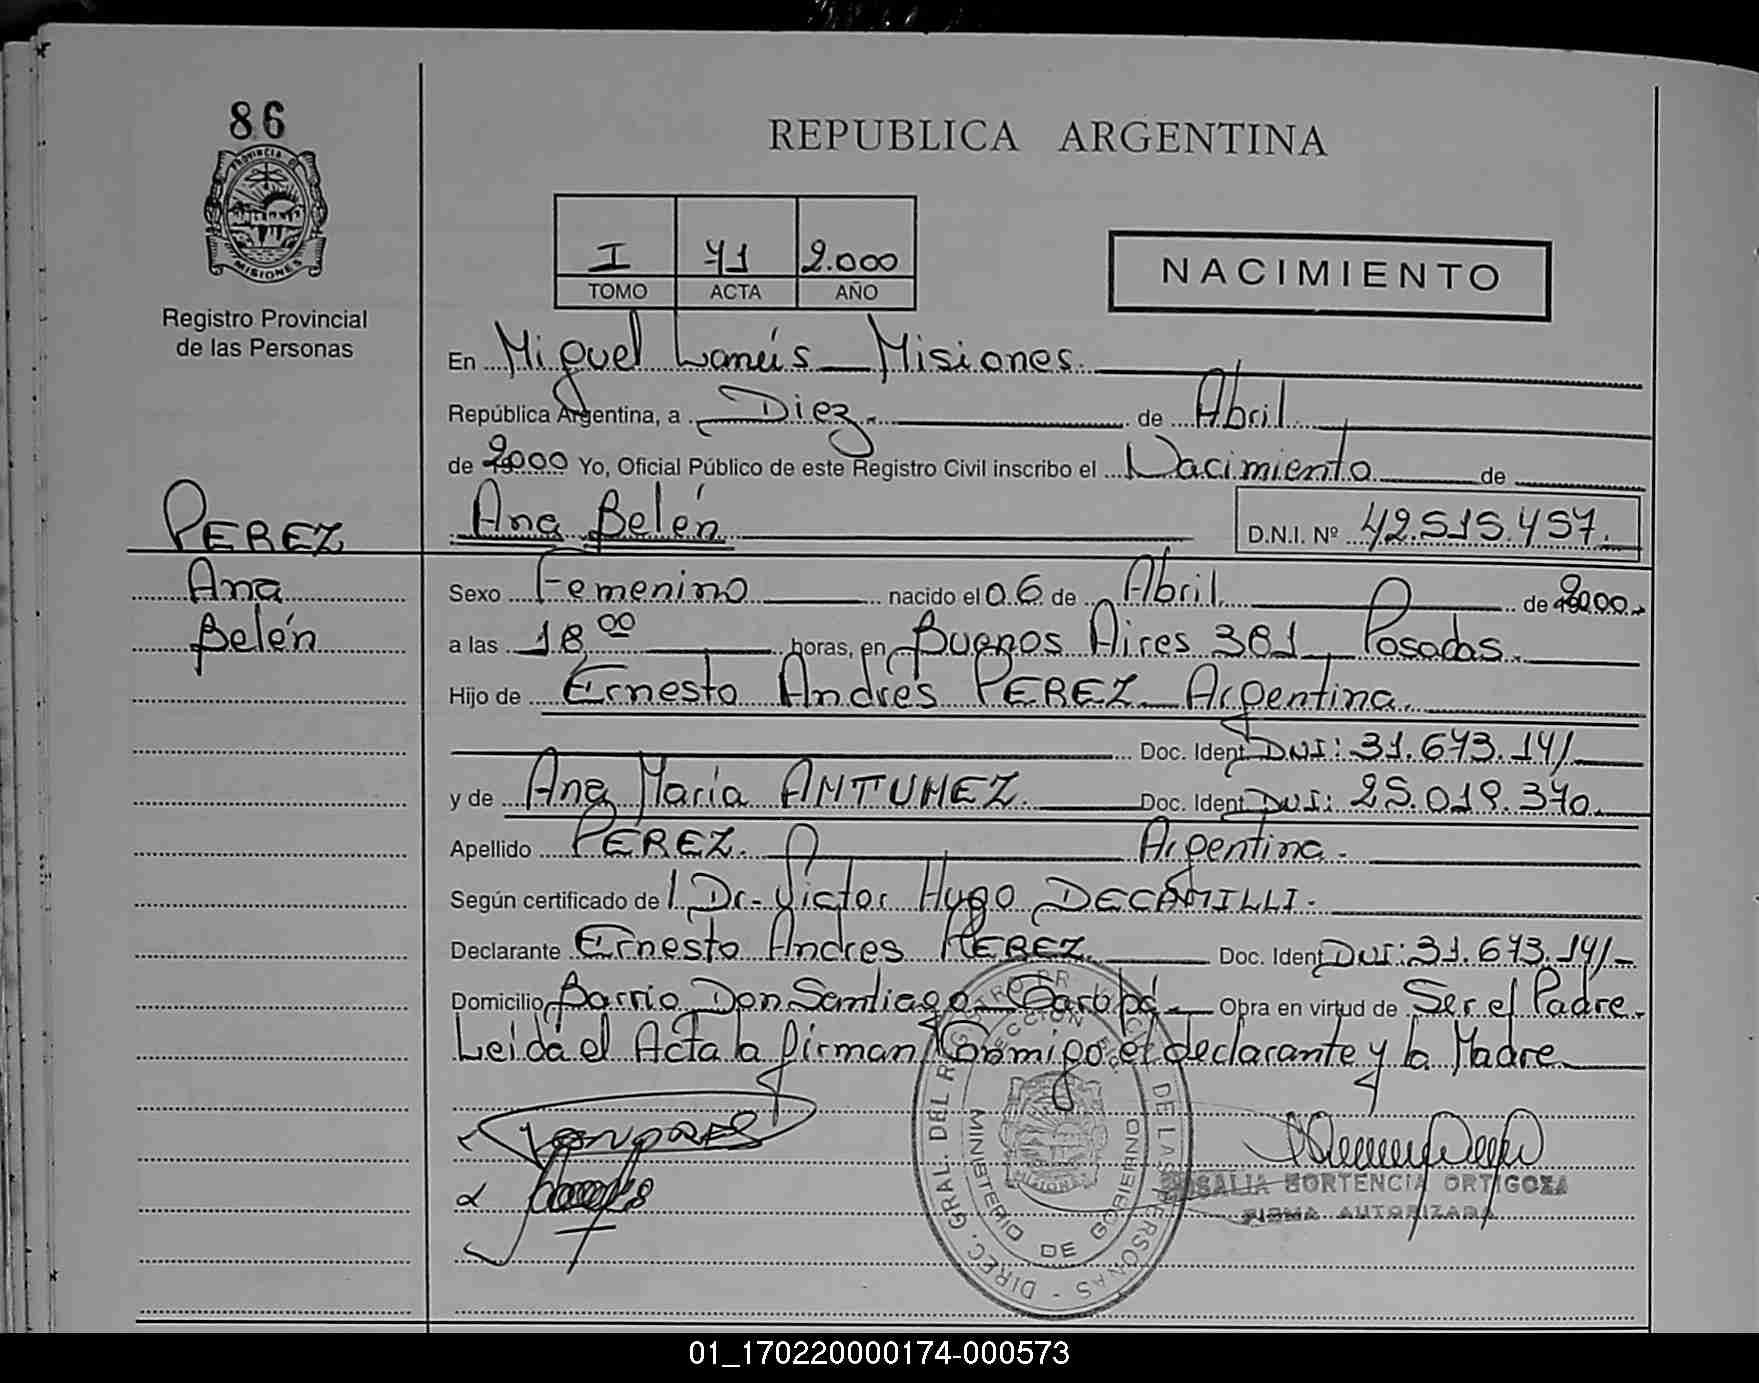 86
PROVINCIA DE
MISIONES
Registro Provincial
de las Personas
REPUBLICA ARGENTINA
I 41 2.000
TOMO ACTA AÑO
NACIMIENTO
En Miguel Lanús - Misiones.
República Argentina, a Diez. de Abril.
de 2000 Yo, Oficial Público de este Registro Civil inscribo el Nacimiento de
PEREZ Ana Belén D.N.I. Nº 42.515.457.
Ana Sexo Femenino nacido el 06 de Abril. de 2000.-
Belén a las 18 00 horas, en Buenos Aires 381 Posadas.
Hijo de Ernesto Andrés PEREZ - Argentina.
Doc. Ident. DNI: 31.673.141-
y de Ana María ANTUNEZ. Doc. Ident. DNI: 25.019.370.
Apellido PEREZ. Argentina.-
Según certificado de l Dr.- Victor Hugo DECAMILLI.-
Declarante Ernesto Andres PEREZ Doc. Ident. DNI: 31.673.141-
Domicilio Barrio Don Santiago - Garupá - Obra en virtud de Ser el Padre.
Leida el Acta la firman Conmigo el declarante y la Madre
DIREC. GRAL. DEL REGISTRO PROVINCIAL DE LAS PERSONAS -
MINISTERIO DE GOBIERNO
MISIONES
ROSALIA HORTENCIA ORTIGOZA
FIRMA AUTORIZADA
01_170220000174-000573